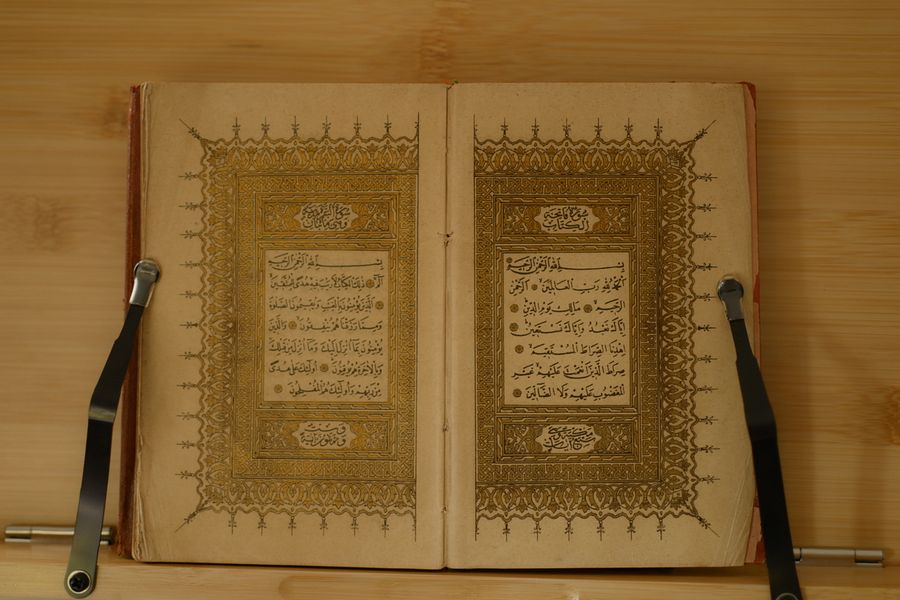 سورة فاتحة
الكتاب
بسم الله الرحمن الرحيم
الحمد لله رب العالمين الرحمن
الرحيم مالك يوم الدين
اياك نعبد واياك نستعين
اهدنا الصراط المستقيم
صراط الذين انعمت عليهم غير
المغضوب عليهم ولا الضالين
سبع آيات
سورة البقرة
وهي مائتان
بسم الله الرحمن الرحيم
الم ذلك الكتاب لا ريب فيه هدى للمتقين
الذين يؤمنون بالغيب ويقيمون الصلوة
ومما رزقناهم ينفقون والذين
يؤمنون بما انزل اليك وما انزل من قبلك
وبالآخرة هم يوقنون اولئك على هدى
من ربهم واولئك هم المفلحون
وست
وثمانون آية